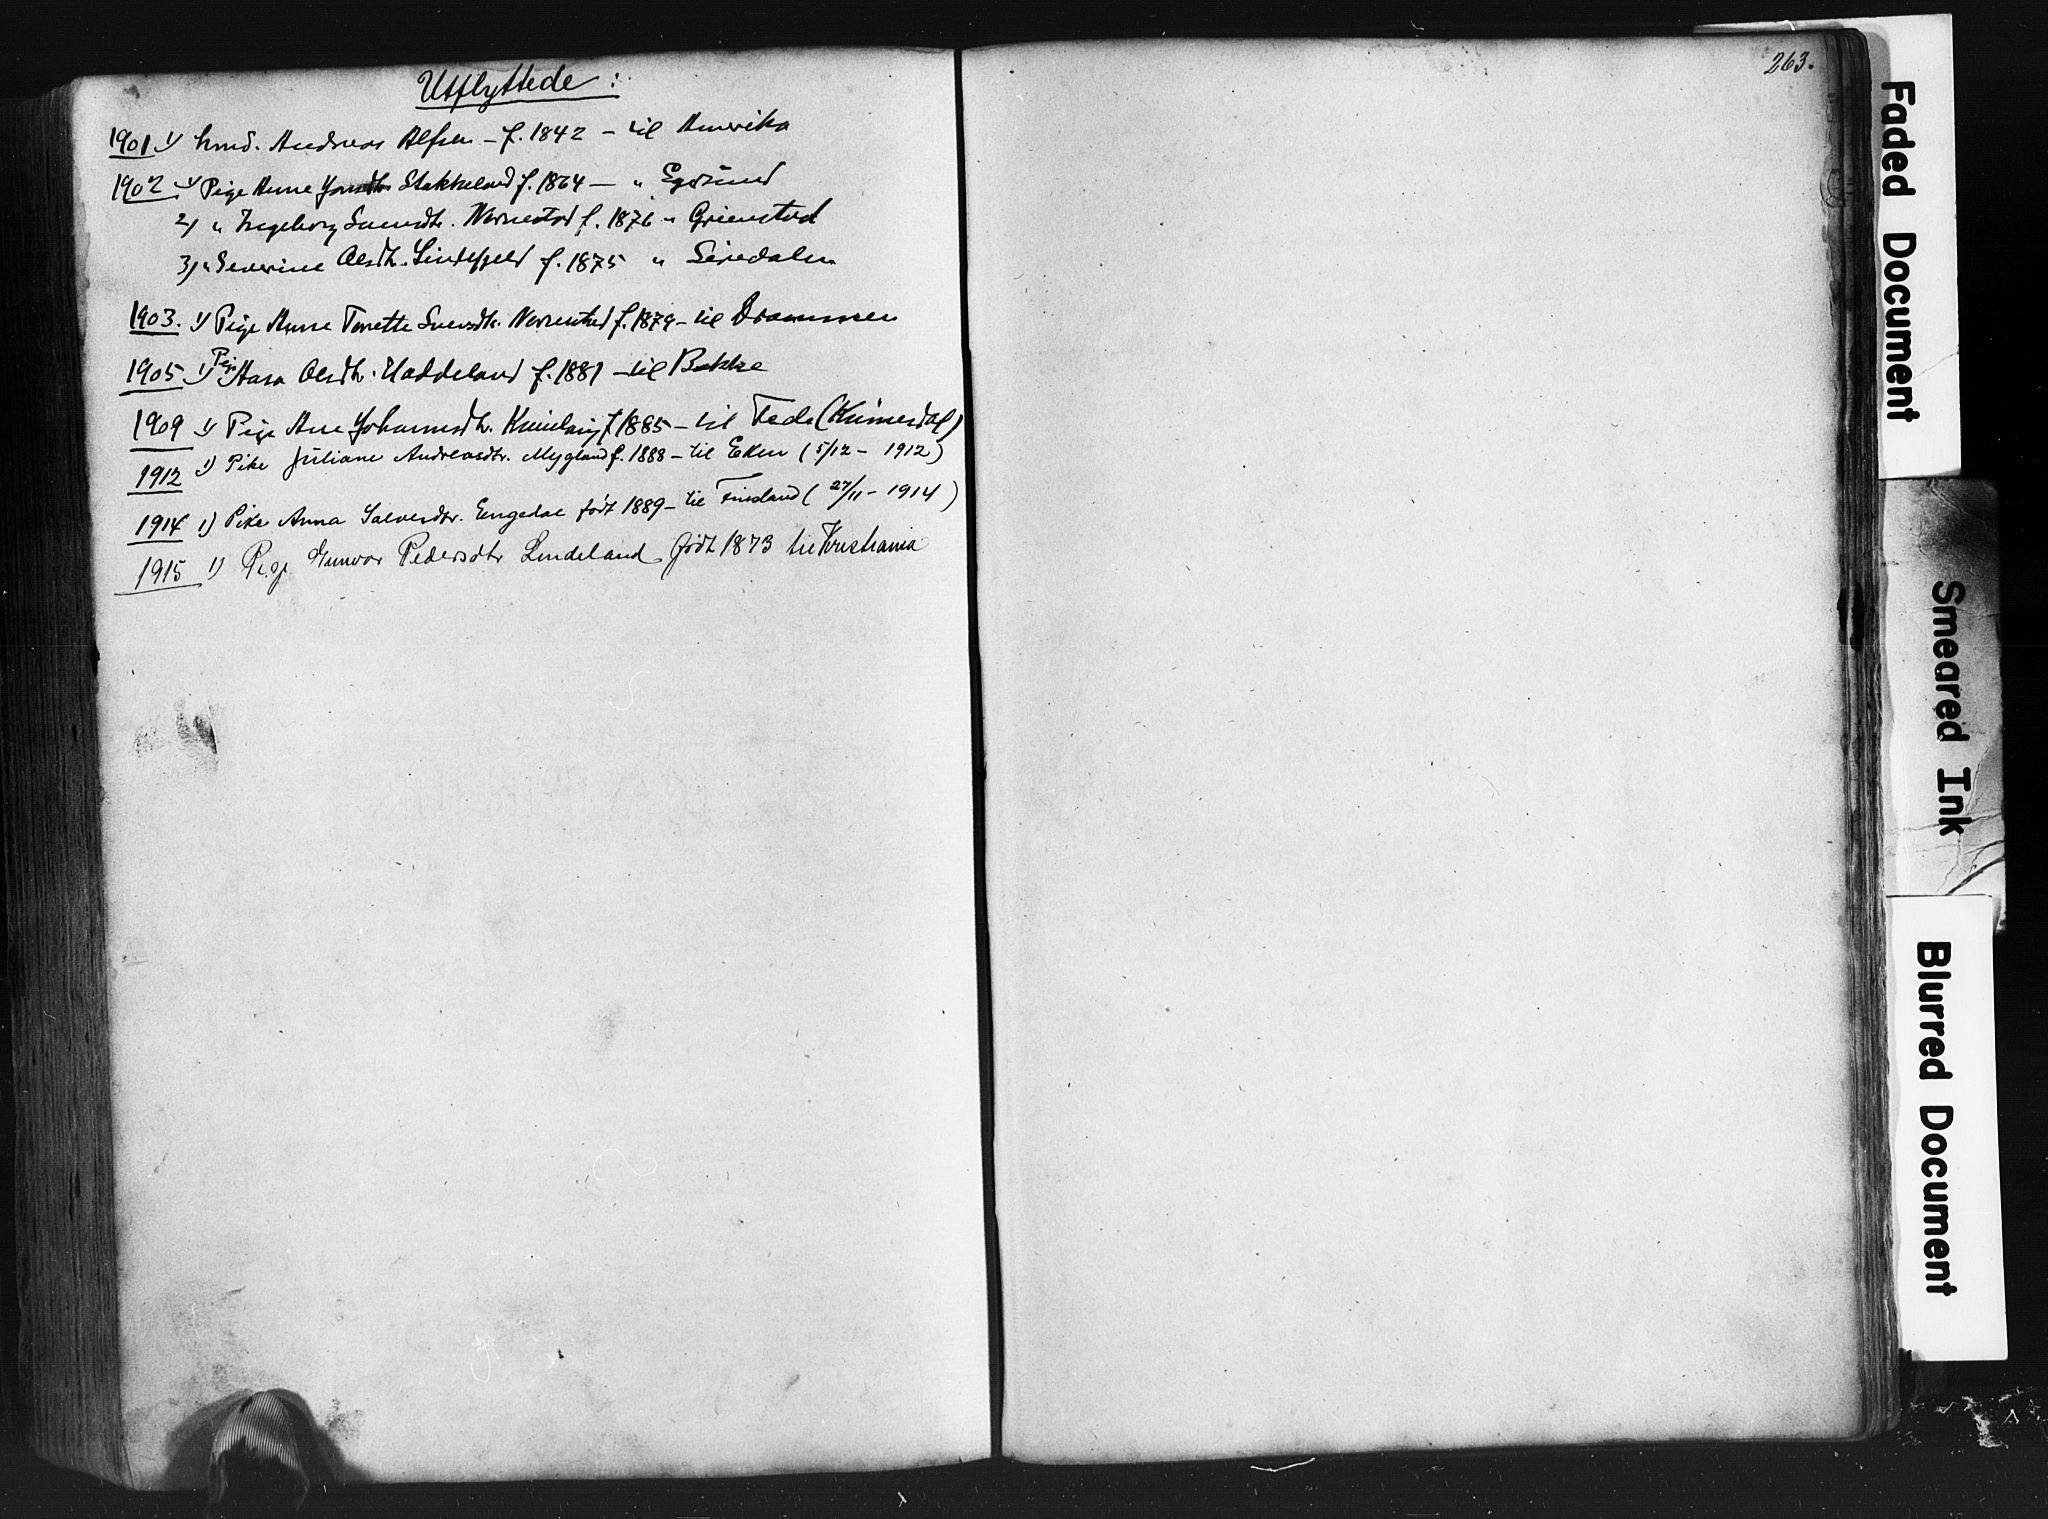 Utflyttede :
263.
1901 1) Smd. Andreas Alfsen – f. 1842 – til Amerika
1902 1) Pige Anne Stakkeland f. 1864 – " Egersund
2) " Ingeborg Svendsdt. Nornestad f. 1876 " Grimstad
3) " Severine Olsdt. Lindefjeld f. 1875 " Siredalen
1903. 1) Pige Anne Svendsdt. Nornestad f. 1879 – til Drammen
1905 1) Pige Aasa Olsdt. Haddeland f. 1881 – til Bakke
1909 1) Pige Ane Johannesdt. f 1885 – til Feda (Kvinesdal)
1912 1) Pike Juliane Andreasdtr. Mygland f. 1888 – til Eken (5/12 – 1912)
1914 1) Pike Anna Salvesdtr. Engedal født 1889 – til Finsland (27/11 – 1914)
1915 1) Pige Gunvor Pedersdtr Lindeland født 1873 til Kristiania
Faded Document
Smeared Ink
Blurred Document